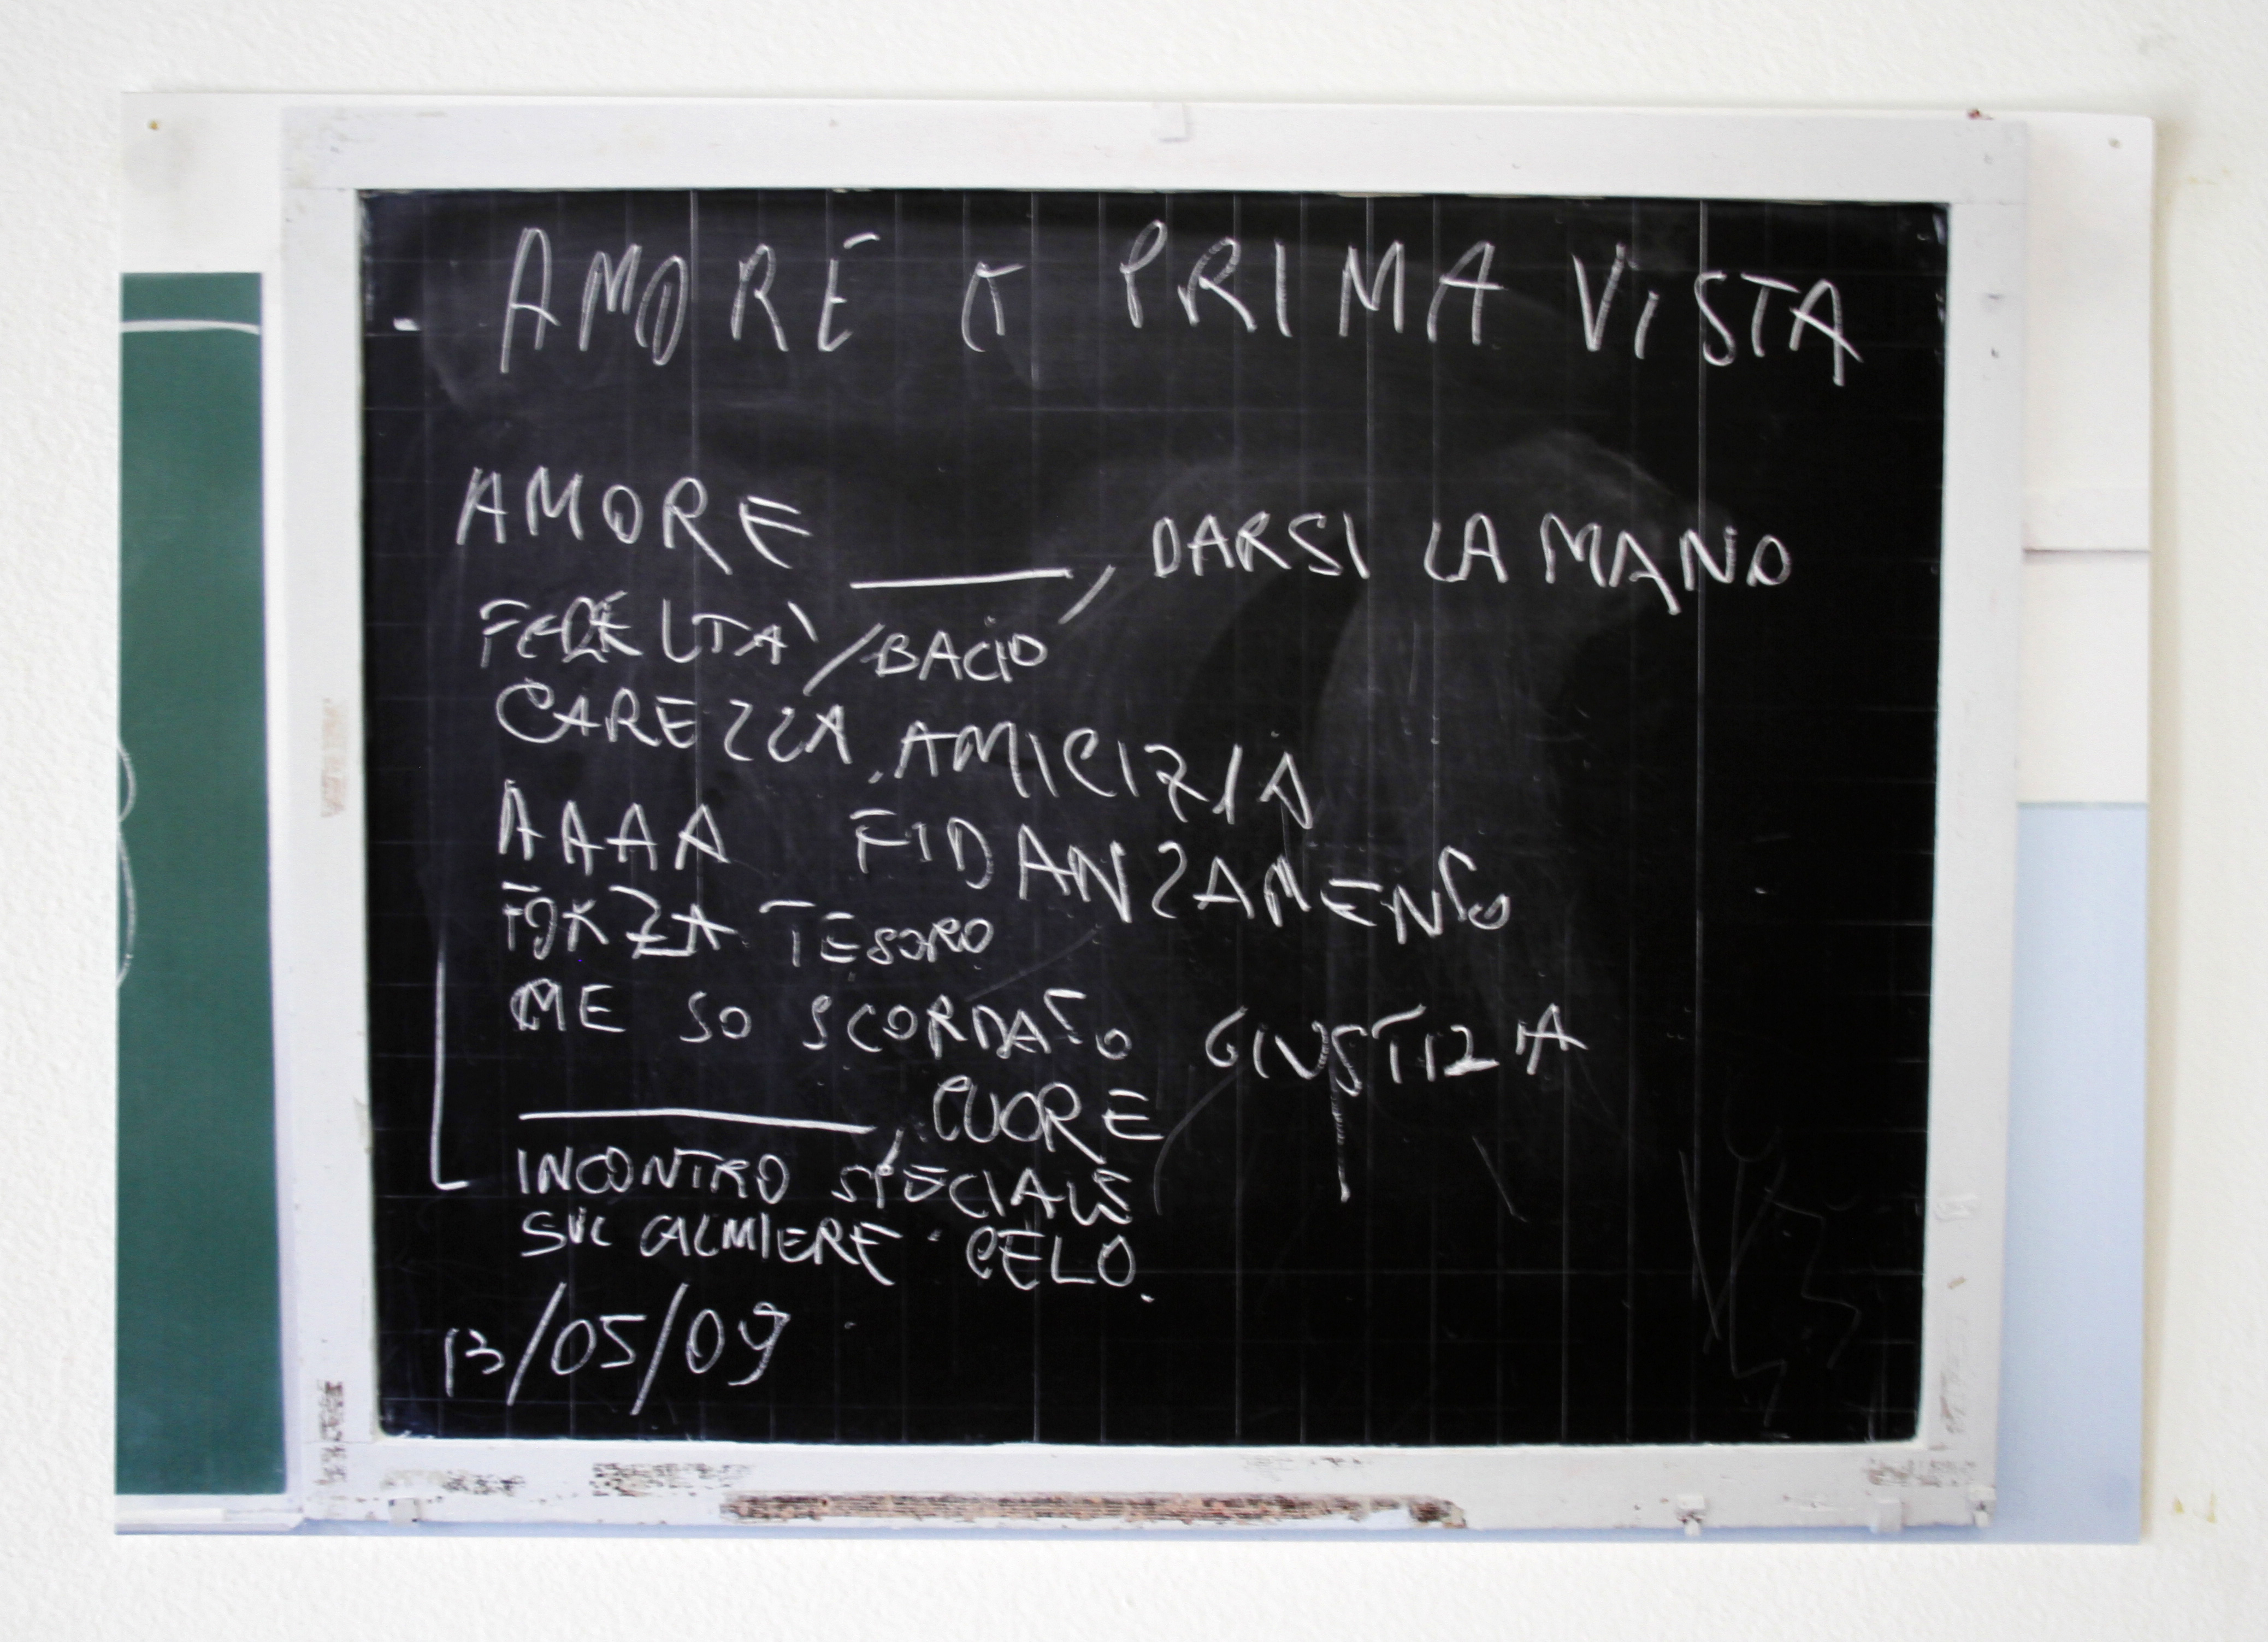 AMORE A PRIMA VISTA
AMORE ______, DARSI LA MANO
FEDELTA'/BACIO
CAREZZA, AMICIZIA
AAAA FIDANZAMENTO
FORZA TESORO
ME SO SCORDATO GIUSTIZIA
______, CUORE
INCONTRO SPECIALE
SUL CALMIERE. CELO.
13/05/09